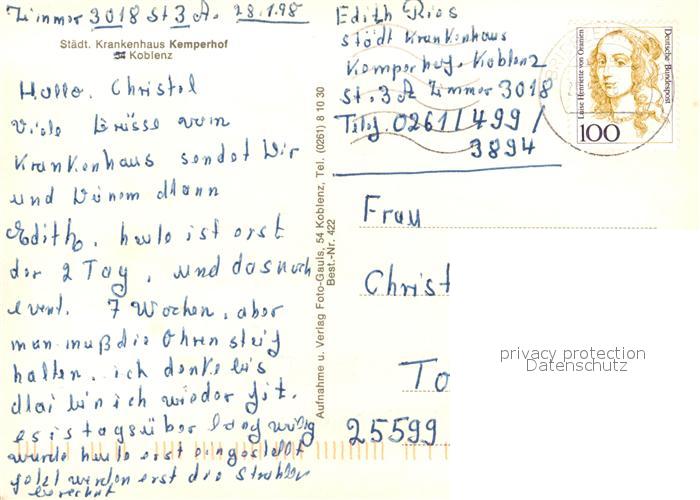 Zimmer 3018 St 3 A. 28.1.98
Städt. Krankenhaus Kemperhof
54 Koblenz
Hallo. Christel
Viele Grüsse vom
Krankenhaus sendet Dir
und Deinem Mann
Edith. heute ist erst
der 2 Tag, und das noch
event. 7 Wochen, aber
man muß die Ohren steif
halten. ich denke bis
Mai bin ich wieder fit.
es ist tagsüber langweilig
wurde heute erst eingestellt
jetzt werden erst die Strahlen
berechnet
Aufnahme u. Verlag Foto-Gauls, 54 Koblenz, Tel. (0261) 8 10 30
Best.-Nr. 422
Edith Ries
städt Krankenhaus
Kemperhof. Koblenz
St. 3 A Zimmer 3018
Telef. 0261/499/
3894
Luise Henriette von Oranien
Deutsche Bundespost
100
BRIEFZEN
Frau
Christ
To
25599
privacy protection
Datenschutz